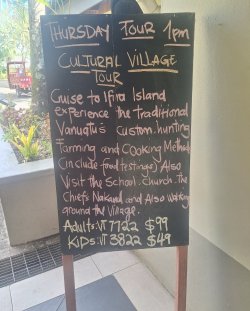 THURSDAY TOUR 1pm
CULTURAL VILLAGE
TOUR
Cuise to Ifira Island
experience the traditional
Vanuatu's custom.hunting
Farming and COOKing Methods
(include food testings) Also
Visit the School.church.the
Chiefs Nakamal and Also Walking
ground the Village.
Adults:VT 7722 $99
KIDS:VT 3822 $49